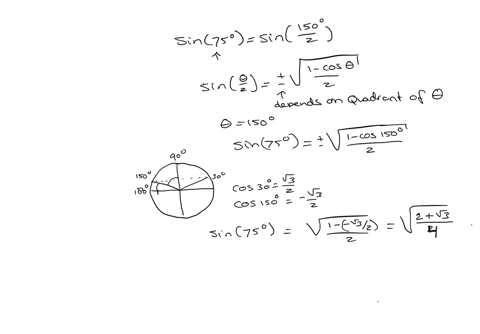 sin(75°) = sin(150°/2)
↑
sin(θ/2) = ±√((1-cos θ)/2)
↑ depends on Quadrant of θ
θ = 150°
sin(75°) = ±√((1-cos 150°)/2)
90°
150° 30°
180°
cos 30° = √3/2
cos 150° = -√3/2
sin(75°) = √((1-(-√3/2))/2) = √((2+√3)/4)